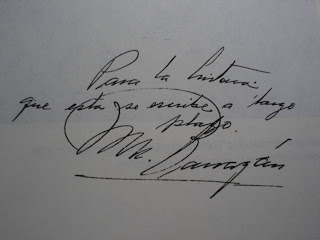 Para la historia
que esta se escribe a largo
plazo.
Barragán